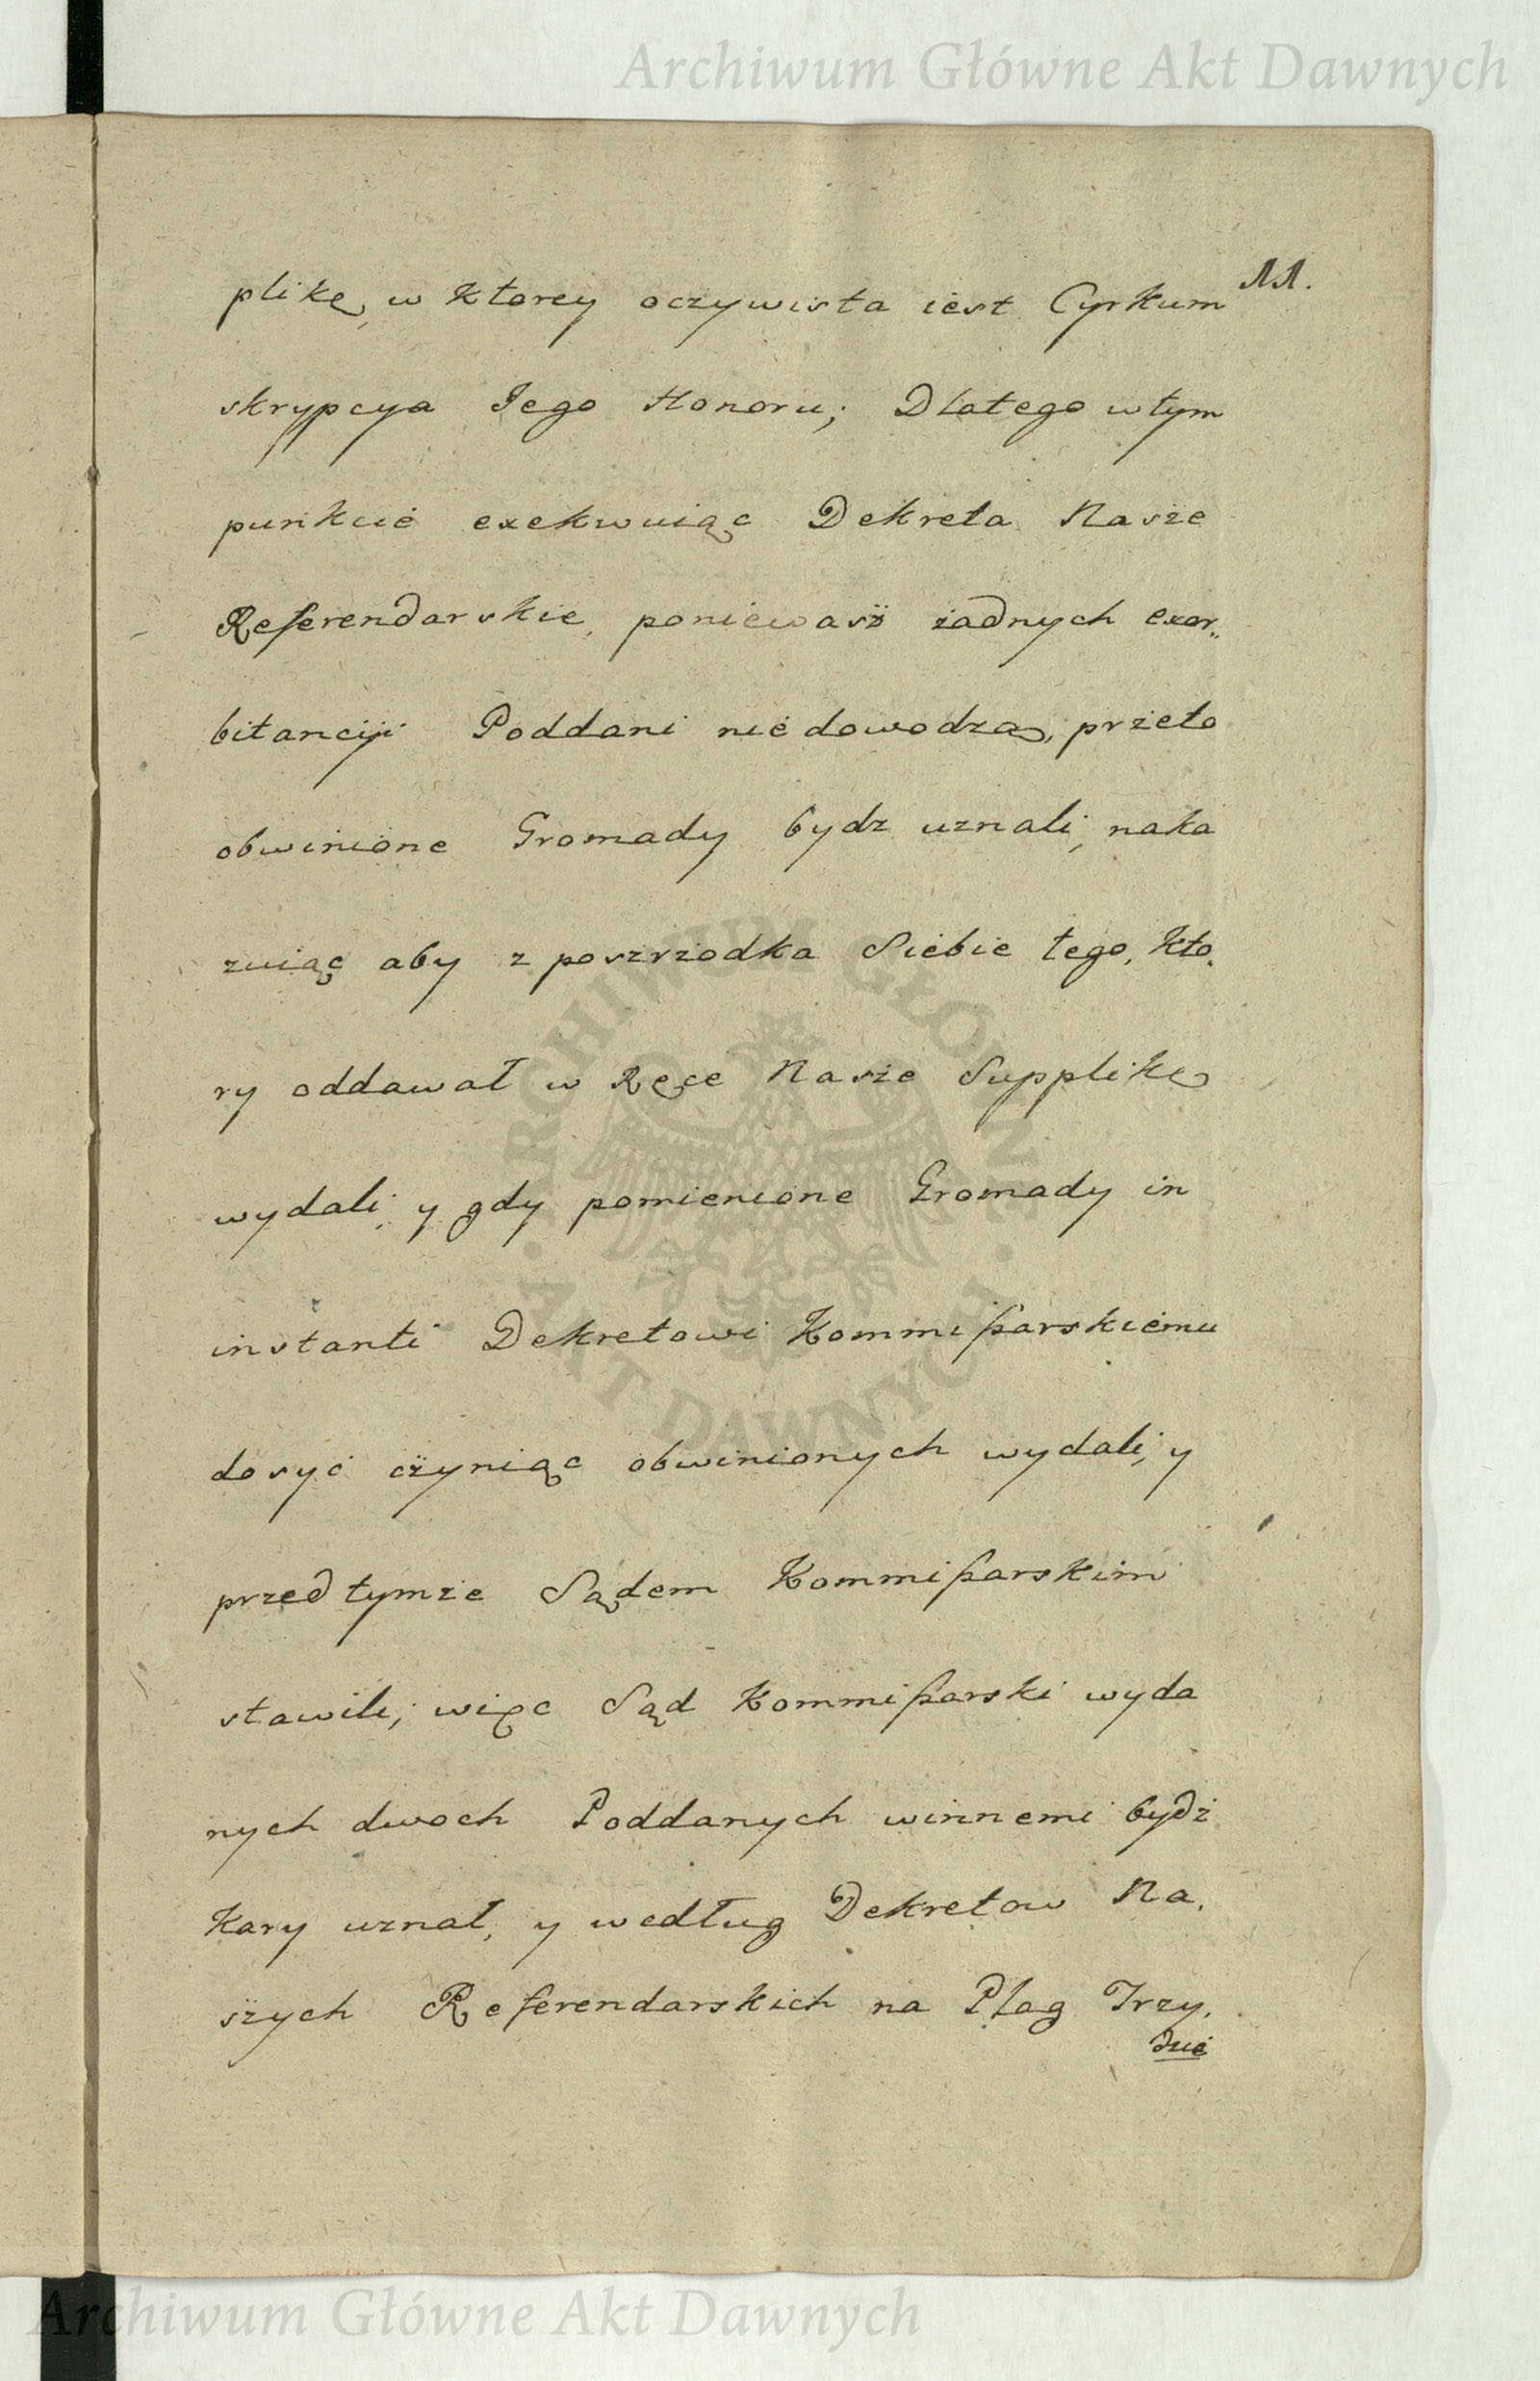 Archiwum Główne Akt Dawnych
11.
plikę, w Ktorey oczywista iest Cyrkum
skrypcya Iego Honoru; Dlatego w tym
punkcie exekwuiąc Dekreta Nasze
Referendarskie, poniewasż żadnych exor„
bitancyi Poddani nie dowodzą, przeto
obwinione Gromady bydz uznali, naka
zuiąc aby z poszrzodka Siebie tego, kto.
ry oddawał w Ręce Nasze Supplikę
wydali, y gdy pomienione Gromady in
instanti Dekretowi Kommißarskiemu
dosyć czyniąc obwinionych wydali, y
przed tymże Sądem Kommißarskim
stawili; więc Sąd Kommißarski wyda
nych dwoch Poddanych winnemi bydź
Kary uznał, y według Dekretow Na.
szych Referendarskich na Plag Trzy.
dzie
ARCHIWUM GŁÓWNE
AKT DAWNYCH
Archiwum Główne Akt Dawnych